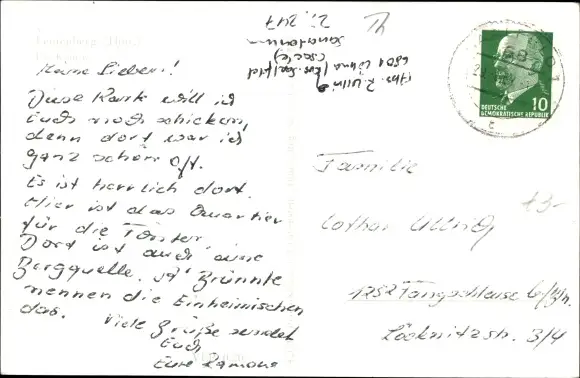 Meine Lieben!
Diese Karte will ich
Euch noch schicken,
denn dort war ich
ganz schön oft.
Es ist herrlich dort.
Hier ist das Quartier
für die Förster.
Dort ist auch eine
Bergquelle, "s' Brünnle"
nennen die Einheimischen
das. Viele Grüße sendet
Euch
Eure Ramona
Abs. R. Ullrig
6801 (Krs. Saalfeld
Sanatorium
Zi. 247
Th
DEUTSCHE
DEMOKRATISCHE REPUBLIK
10
Familie
Lothar Ullrig
1252 Fangschleuse b/Bln.
Löcknitzstr. 3/4